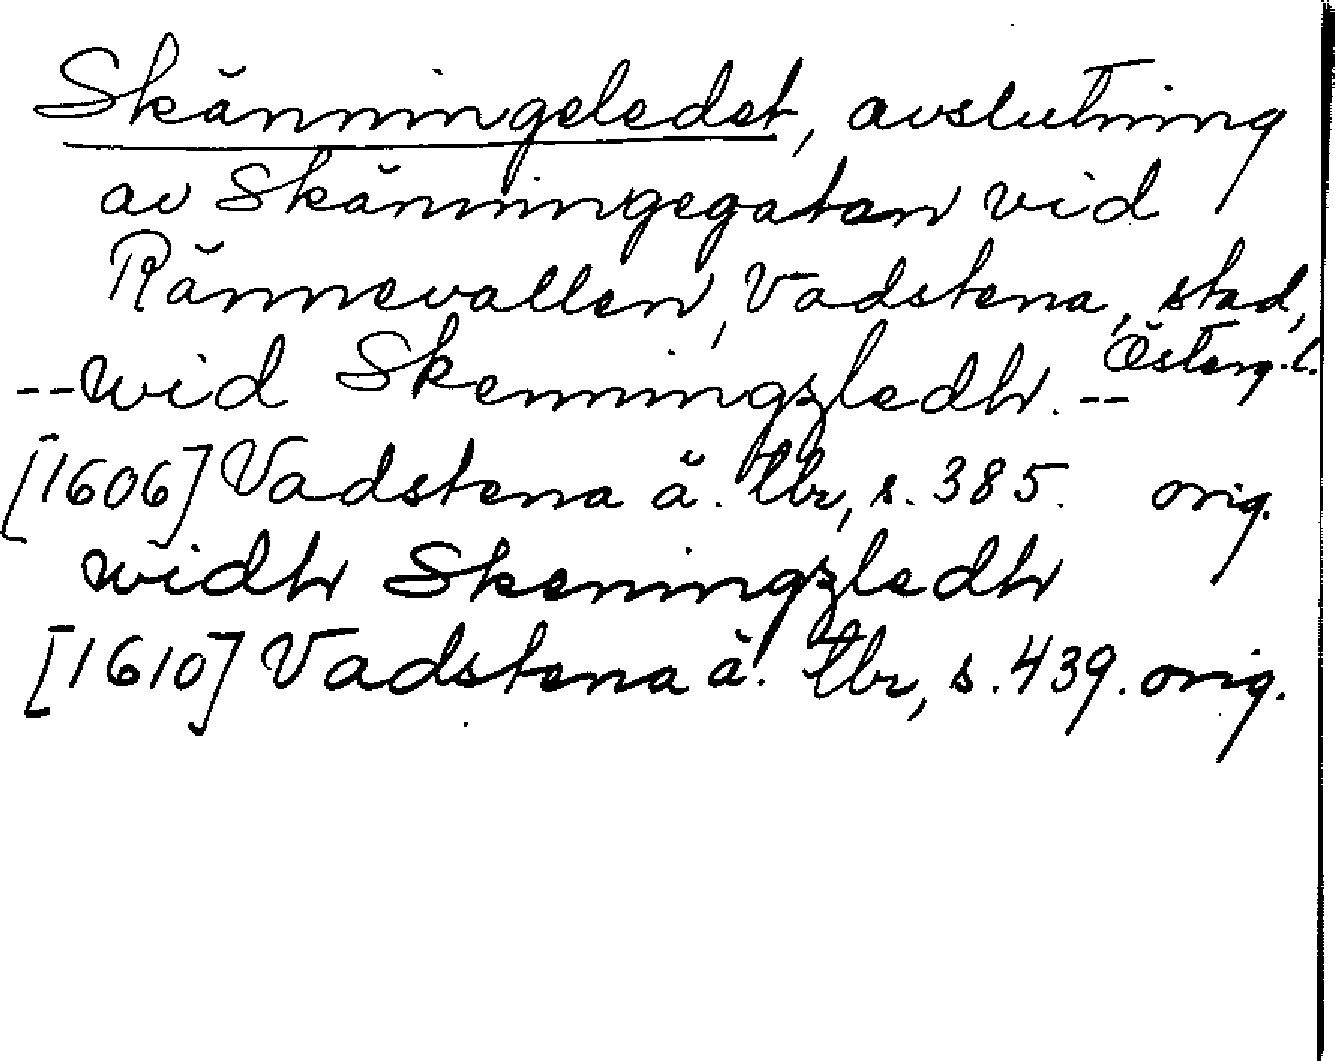 Skänningeledet, avslutning
av Skänningegatan vid
Rännevallen, Vadstena, stad,
Österg. l.
--wid Skenningzledh. --
[1606] Vadstena ä. tbr, s. 385. orig.
widh Skeningzledh
[1610] Vadstena ä. tbr, s. 439. orig.